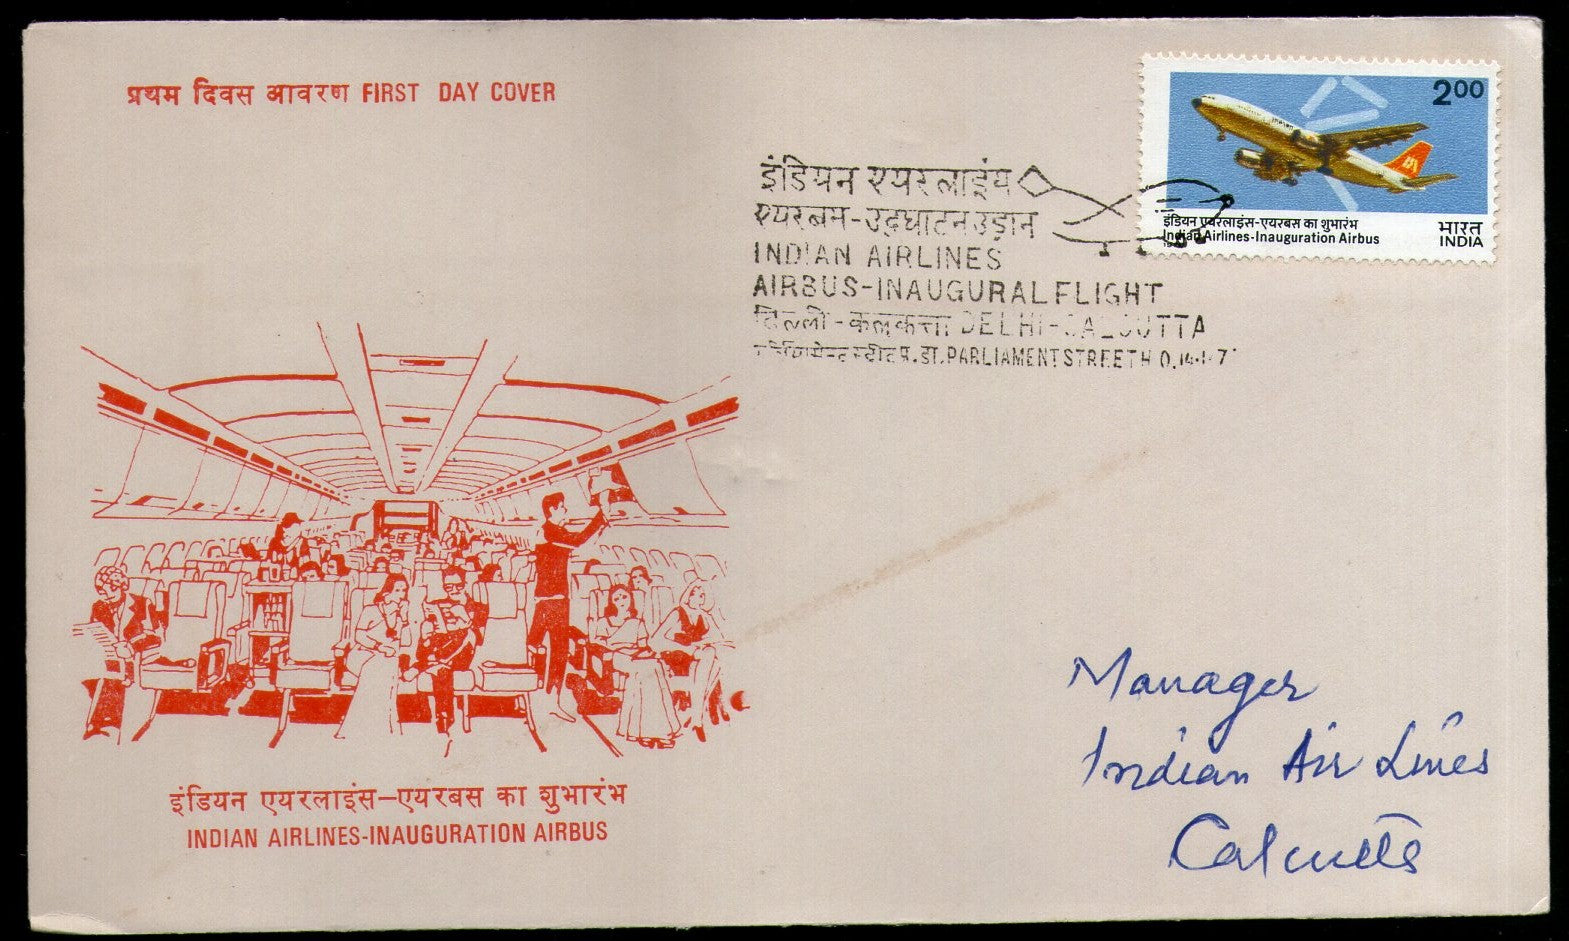 प्रथम दिवस आवरण FIRST DAY COVER
2.00
इंडियन एयरलाइंस-एयरबस का शुभारंभ
Indian Airlines-Inauguration Airbus
भारत
INDIA
इंडियन एयरलाइंय
एयरबस-उद्घाटन उड़ान
INDIAN AIRLINES
AIRBUS-INAUGURAL FLIGHT
दिल्ली-कलकत्ता DELHI-CALCUTTA
PARLIAMENT STREET H.O.
इंडियन एयरलाइंस-एयरबस का शुभारंभ
INDIAN AIRLINES-INAUGURATION AIRBUS
Manager
Indian Air Lines
Calcutta